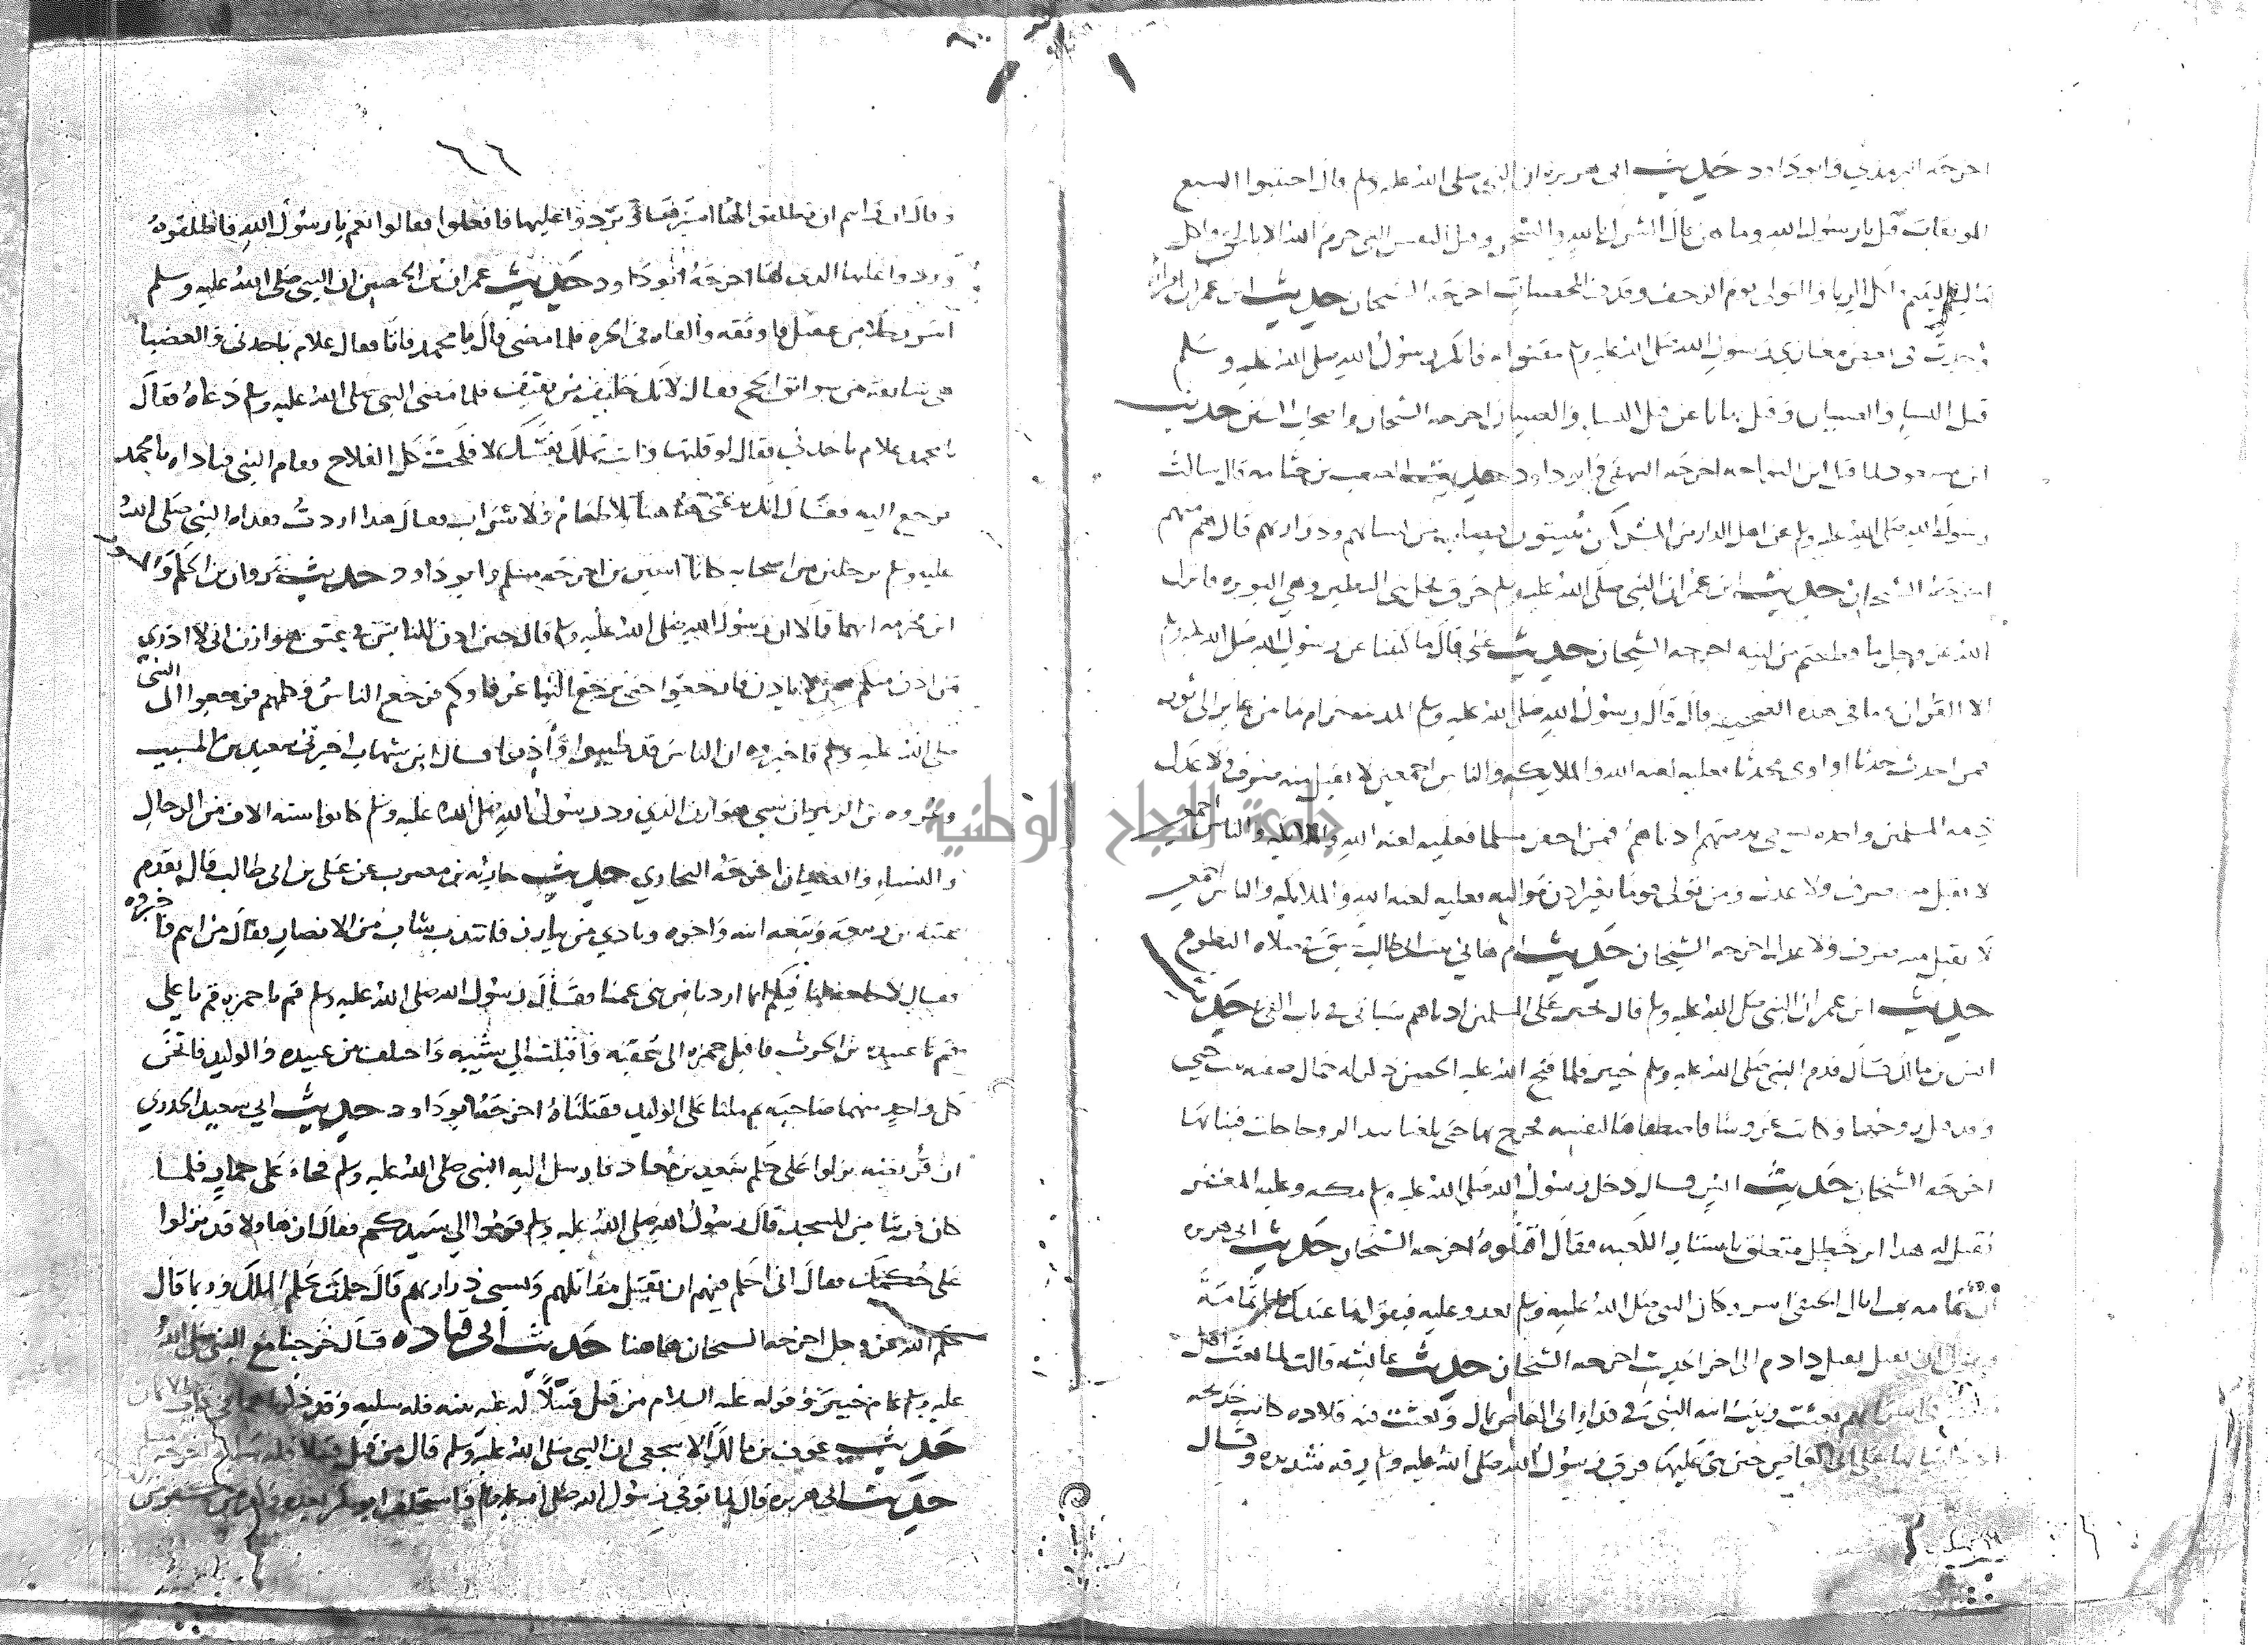 اخرجه الترمذي وابو داود حديث ابى هريرة ان النبي صلى الله عليه وسلم قال اجتنبوا السبع
الموبقات قيل يا رسول الله وما هن قال الشرك بالله والسحر وقتل النفس التي حرم الله الا بالحق واكل
مال اليتيم واكل الربا والتولي يوم الزحف وقذف المحصنات اخرجه الشيخان حديث ابن عمر ان امراة
وجدت في بعض مغازي رسول الله صلى الله عليه وسلم مقتولة فانكر رسول الله صلى الله عليه وسلم
قتل النساء والصبيان وقيل نهانا عن قتل النساء والصبيان اخرجه الشيخان واصحاب السنن حديث
ابن مسعود اخرجه البيهقي وابو داود حديث الصعب بن جثامة قال سالت
رسول الله صلى الله عليه وسلم عن اهل الدار من المشركين يبيتون فيصاب من نسائهم وذراريهم قال هم منهم
اخرجه الشيخان حديث ابن عمر ان النبي صلى الله عليه وسلم حرق نخل بنى النضير وهي البويرة فانزل
الله عز وجل ما قطعتم من لينة اخرجه الشيخان حديث على قال ما كتبنا عن رسول الله صلى الله عليه وسلم
الا القران وما في هذه الصحيفة قال قال رسول الله صلى الله عليه وسلم المدينة حرام ما بين عاير الى ثور
فمن احدث حدثا او اوى محدثا فعليه لعنة الله والملايكة والناس اجمعين لا يقبل منه صرف ولا عدل
ذمة المسلمين واحدة يسعى بذمتهم ادناهم فمن اخفر مسلما فعليه لعنة الله والملايكة والناس اجمعين
لا يقبل منه صرف ولا عدل ومن تولى قوما بغير اذن مواليه فعليه لعنة الله والملايكة والناس اجمعين
لا يقبل منه صرف ولا عدل اخرجه الشيخان حديث ام هاني بنت ابى طالب سبق في صلاه التطوع
حديث ابن عمر ان النبي صلى الله عليه وسلم قال يجير على المسلمين ادناهم سياتي في باب الفيء حديث
انس بن مالك قال قدم النبي صلى الله عليه وسلم خيبر فلما فتح الله عليه الحصن ذكر له جمال صفيه بنت حيي
وقد قتل زوجها وكانت عروسا فاصطفاها لنفسه فخرج بها حتى بلغنا سد الروحا حلت فبنا بها
اخرجه الشيخان حديث انس قال دخل رسول الله صلى الله عليه وسلم مكه وعليه المغفر
فقيل له هذا ابن خطل متعلق باستار الكعبه فقال اقتلوه اخرجه الشيخان حديث ابى هريره
ان ثمامه بن اثال الحنفى اسر وكان النبي صلى الله عليه وسلم يعدو عليه فيقول ما عندك يا ثمامة
فيقول ان تقتل تقتل ذا دم الى اخر الحديث اخرجه الشيخان حديث عايشه قالت لما بعث اهل
مكه في اسراهم بعثت زينب ابنه النبي في فداء ابى العاص بمال وبعثت فيه قلاده كانت خديجه
ادخلتها بها على ابى العاص حين بنى عليها فرق رسول الله صلى الله عليه وسلم رقه شديده وقال
٦٦
وقال ان رايتم ان تطلقوا لها اسيرها وتردوا عليها فافعلوا فقالوا نعم يا رسول الله فاطلقوه
وردوا عليها الذي لها اخرجه ابو داود حديث عمران بن الحصين ان النبي صلى الله عليه وسلم
اسر رجلا من عقيل فاوثقه والقاه في الحره فلما مضى قال يا محمد فاتاه فقال علام تاخذني والعضبا
هي سابقه من سوابق الحج فقال لانك حليف من ثقيف فلما مضى النبي صلى الله عليه وسلم دعاه فقال
يا محمد علام تاخذني فقال لو قلتها وانت تملك نفسك لافلحت كل الفلاح فقام النبي فناداه يا محمد
فرجع اليه فقال الا طعام ولا شراب فقال هذا اردت ففداه النبي صلى الله
عليه وسلم برجلين من اصحابه كانا اسيرين اخرجه مسلم وابو داود حديث مروان بن الحكم والمسور
ابن مخرمه انهما قالا ان رسول الله صلى الله عليه وسلم قال حين اذن للناس في عتق هوازن انى لا ادري
من اذن منكم ممن لا ياذن فارجعوا حتى يرجع الينا عرفاوكم فرجع الناس وكلمهم فرجعوا الى النبي
صلى الله عليه وسلم فاخبروه ان الناس قد طيبوا واذنوا قال ابن شهاب اخبرني سعيد بن المسيب
وعروه بن الزبير ان سبي هوازن الذي رد رسول الله صلى الله عليه وسلم كانوا سته الاف من الرجال
والنساء والصبيان اخرجه البخاري حديث حارثه بن مضرب عن على بن ابى طالب قال تقدم
عتبه بن ربيعه وتبعه ابنه واخوه ونادي من يبارز فانتدب شاب من الانصار فقال من انتم فاخبروه
فقال لا حاجه لنا فيكم انما اردنا من بنى عمنا فقال رسول الله صلى الله عليه وسلم قم يا حمزه قم يا علي
قم يا عبيده بن الحرث فاقبل حمزه الى عتبه واقبلت الى شيبه واختلف بين عبيده والوليد فاثخن
كل واحد منهما صاحبه ثم ملنا على الوليد فقتلناه اخرجه ابو داود حديث ابي سعيد الخدري
ان قريظه نزلوا على حكم سعد بن معاذ فارسل اليه النبي صلى الله عليه وسلم فجاء على حمار فلما
كان قريبا من المسجد قال رسول الله صلى الله عليه وسلم قوموا الى سيدكم فقال ان هاولا قد نزلوا
على حكمك فقال انى احكم فيهم ان تقتل مقاتلهم وتسبى ذراريهم قال حكمت بحكم الملك وربما قال
حكم الله عز وجل اخرجه الشيخان هاهنا حديث ابى قتاده قال خرجنا مع النبي صلى الله
عليه وسلم عام خيبر وقوله عليه السلام من قتل قتيلا له عليه بينه فله سلبه وقد
حديث عوف بن مالك الاشجعى ان النبي صلى الله عليه وسلم قال من قتل قتيلا فله سلبه اخرجه مسلم
حديث ابى هريره قال لما توفي رسول الله صلى الله عليه وسلم واستخلف ابو بكر بعده
جامعة النجاح الوطنية